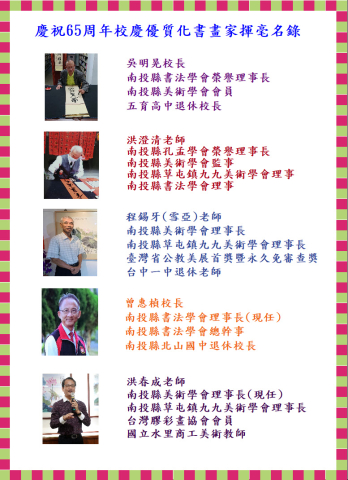 慶祝65周年校慶優質化書畫家揮毫名錄
吳明晃校長
南投縣書法學會榮譽理事長
南投縣美術學會會員
五育高中退休校長
洪澄清老師
南投縣孔孟學會榮譽理事長
南投縣美術學會監事
南投縣草屯鎮九九美術學會理事
南投縣書法學會理事
程錫牙(雪亞)老師
南投縣美術學會理事長
南投縣草屯鎮九九美術學會理事長
臺灣省公教美展首獎暨永久免審查獎
台中一中退休老師
曾惠楨校長
南投縣書法學會理事長(現任)
南投縣書法學會總幹事
南投縣北山國中退休校長
洪春成老師
南投縣美術學會理事長(現任)
南投縣草屯鎮九九美術學會理事長
台灣膠彩畫協會會員
國立水里商工美術教師